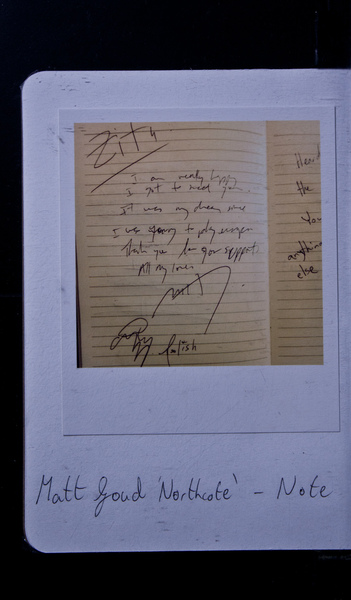 Zita
I am really happy
I got to meet you.
It was my dream
I was young to play
Thank you for your support
All my love
Matt
English
Heart
the
You
anything
else
Matt Goud 'Northcote' - Note